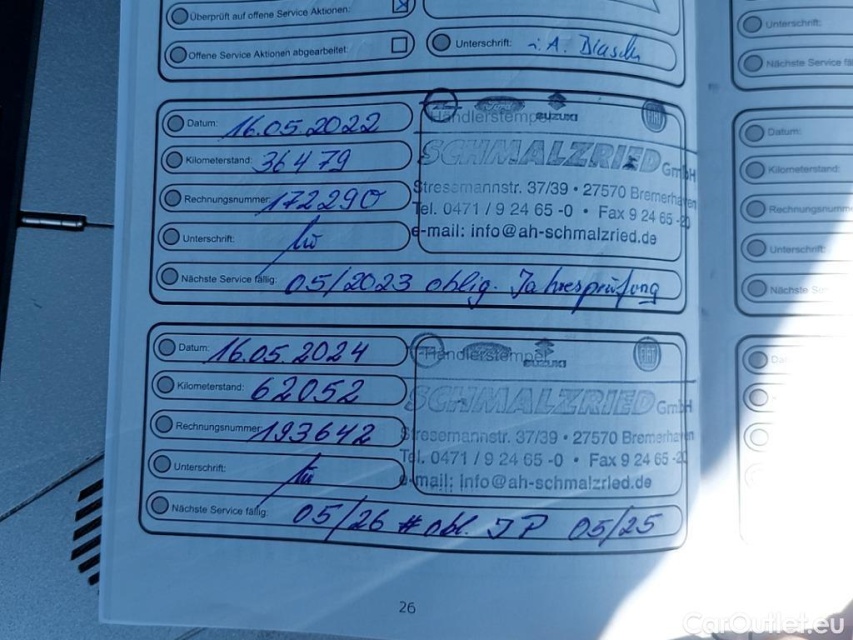 Überprüft auf offene Service Aktionen:
Offene Service Aktionen abgearbeitet
Unterschrift: i. A.
Datum: 16.05.2022
Händlerstempel
SUZUKI
Kilometerstand: 36479
SCHMALZRIED GmbH
Rechnungsnummer: 172290
Stresemannstr. 37/39 • 27570 Bremerhaven
Tel. 0471 / 9 24 65 -0 • Fax 9 24 65 -20
Unterschrift:
e-mail: info@ah-schmalzried.de
Nächste Service fällig: 05/2023 oblig. Jahresprüfung
Datum: 16.05.2024
Händlerstempel
SUZUKI
Kilometerstand: 62052
SCHMALZRIED GmbH
Rechnungsnummer: 193642
Stresemannstr. 37/39 • 27570 Bremerhaven
Tel. 0471 / 9 24 65 -0 • Fax 9 24 65 -2
Unterschrift:
e-mail: info@ah-schmalzried.de
Nächste Service fällig: 05/26 # obl. JP 05/25
26
Unterschrift:
Nächste Service fäl
Datum:
Kilometerstand:
Rechnungsnumm
Unterschrift:
Nächste Se
CarOutlet.eu